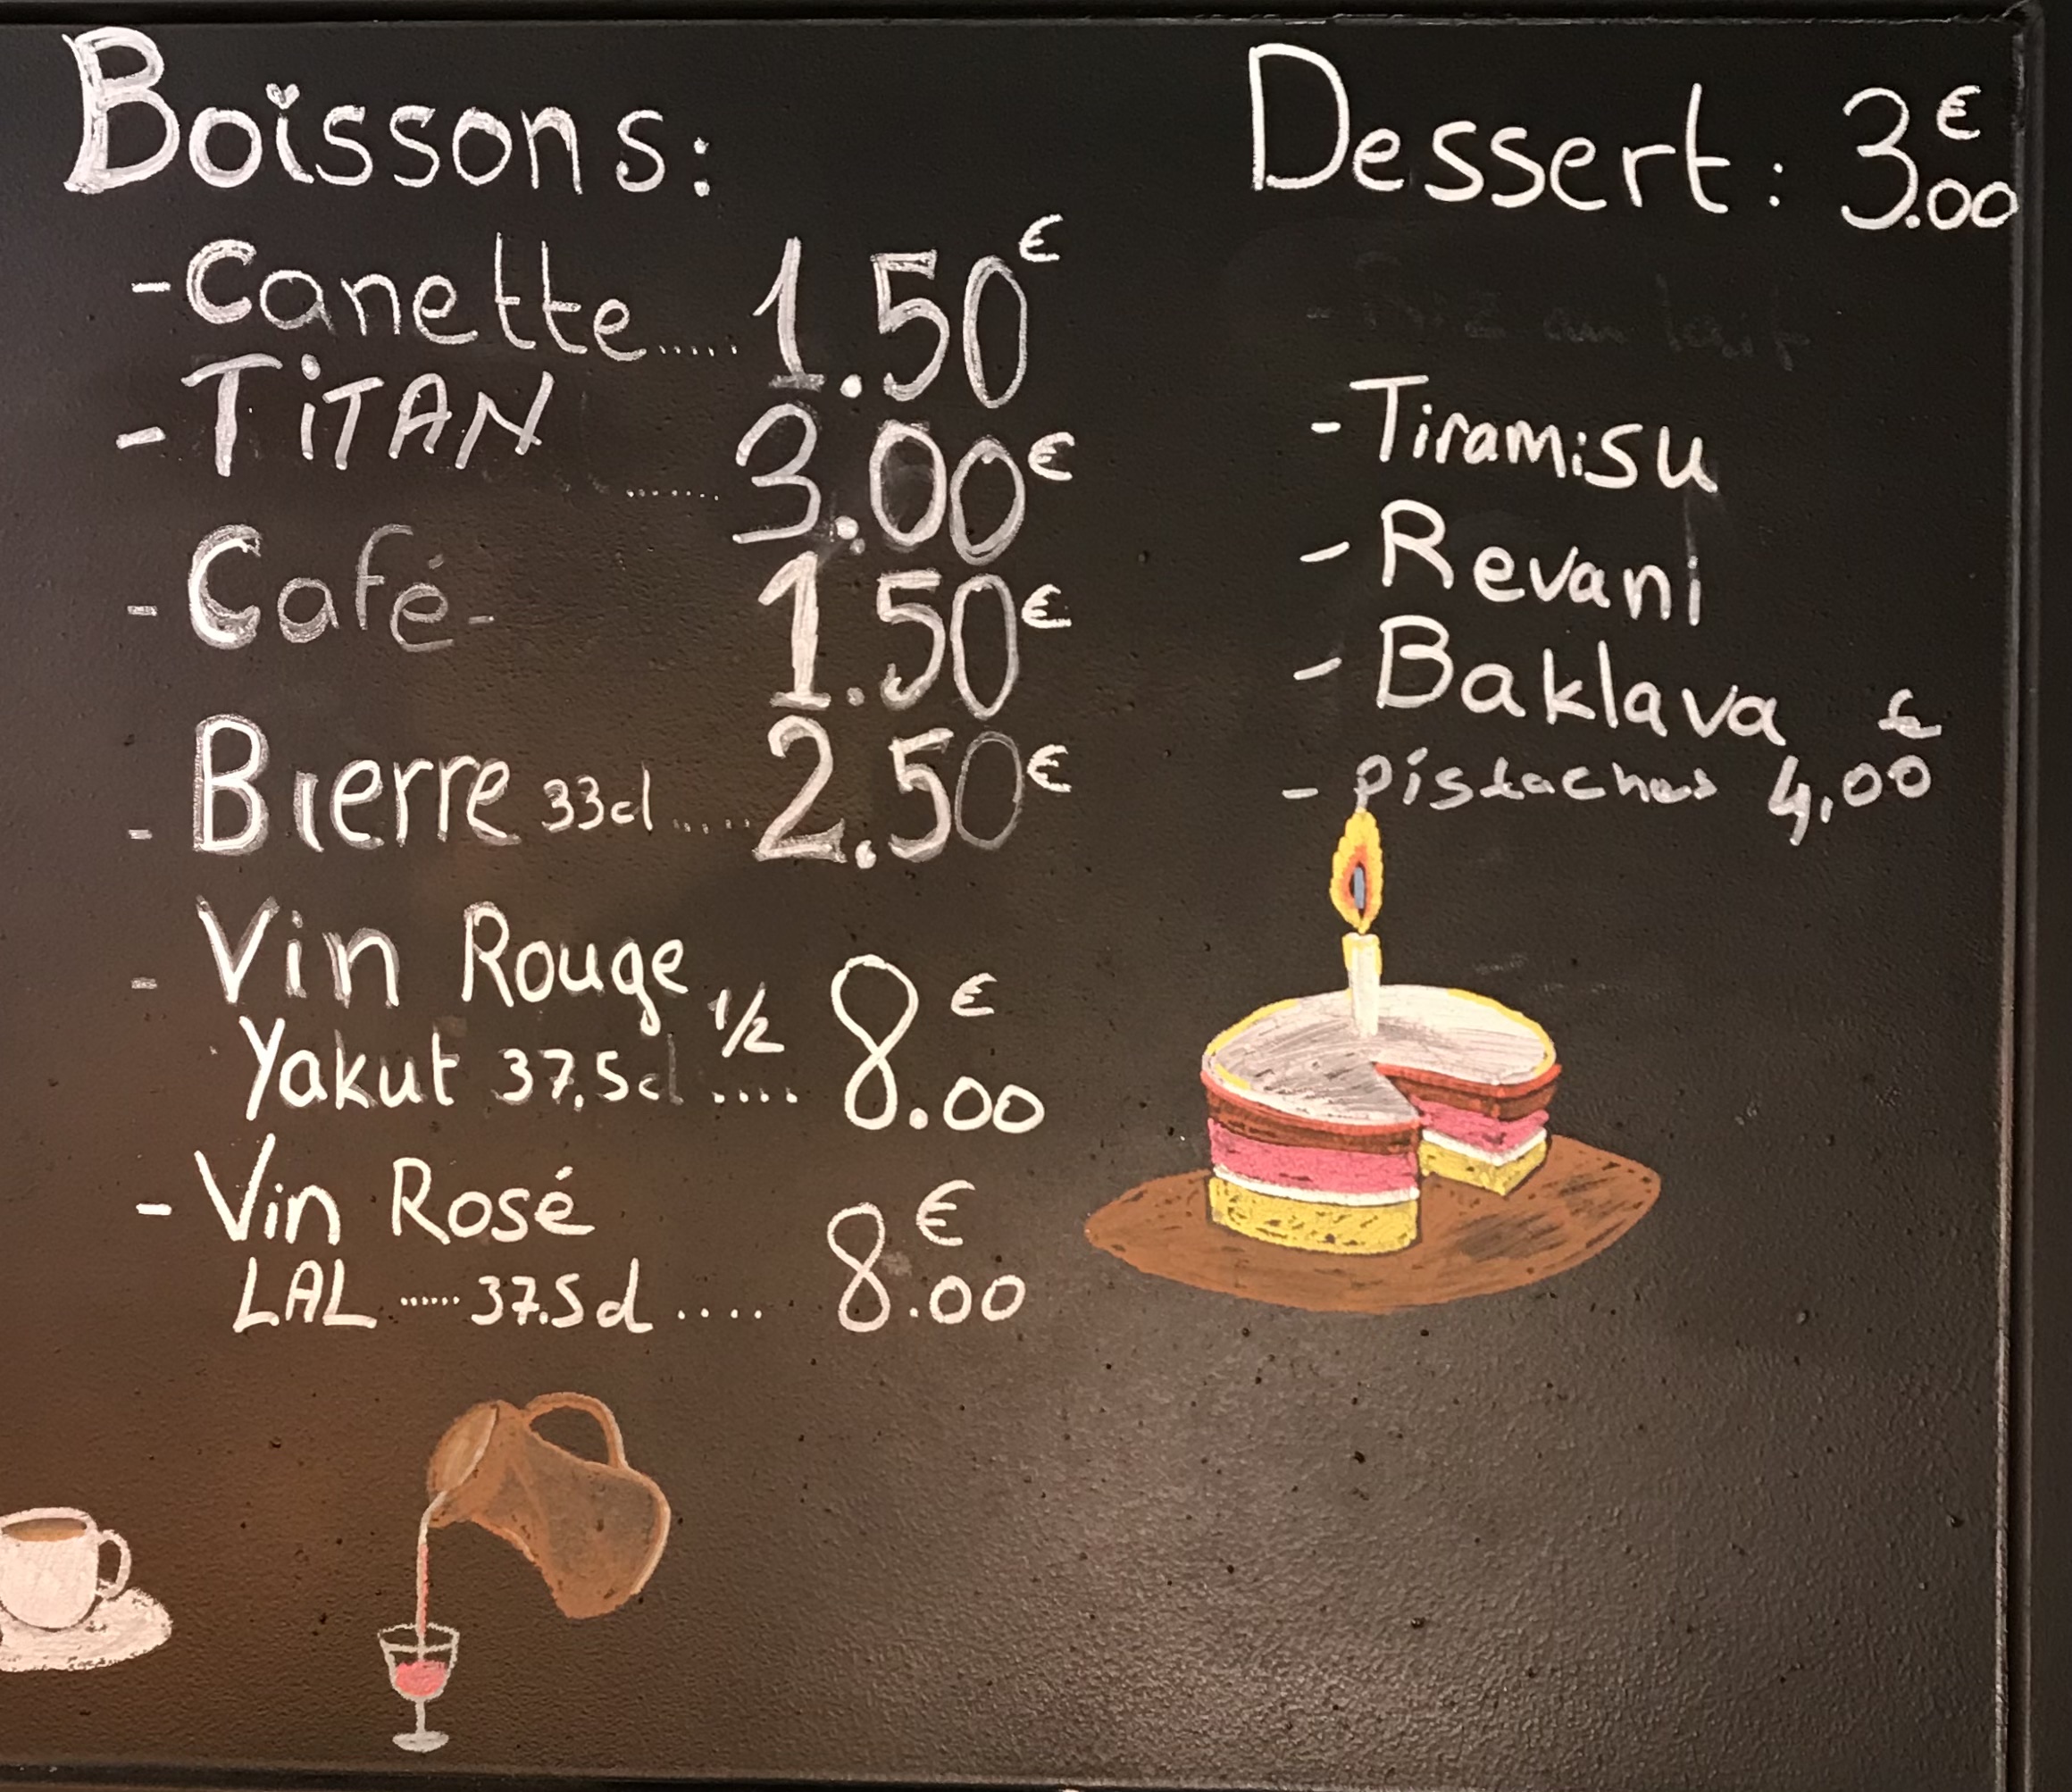 Boissons:
- Canette..... 1.50€
- TiTAN ...... 3.00€
- Café- 1.50€
- Bierre 33cl ..... 2.50€
- Vin Rouge
Yakut 37,5cl 1/2 .... 8.00€
- Vin Rosé
LAL ...... 37.5cl .... 8.00€
Dessert : 3.00€
- Tiramisu
- Revani
- Baklava
- pistaches 4,00€